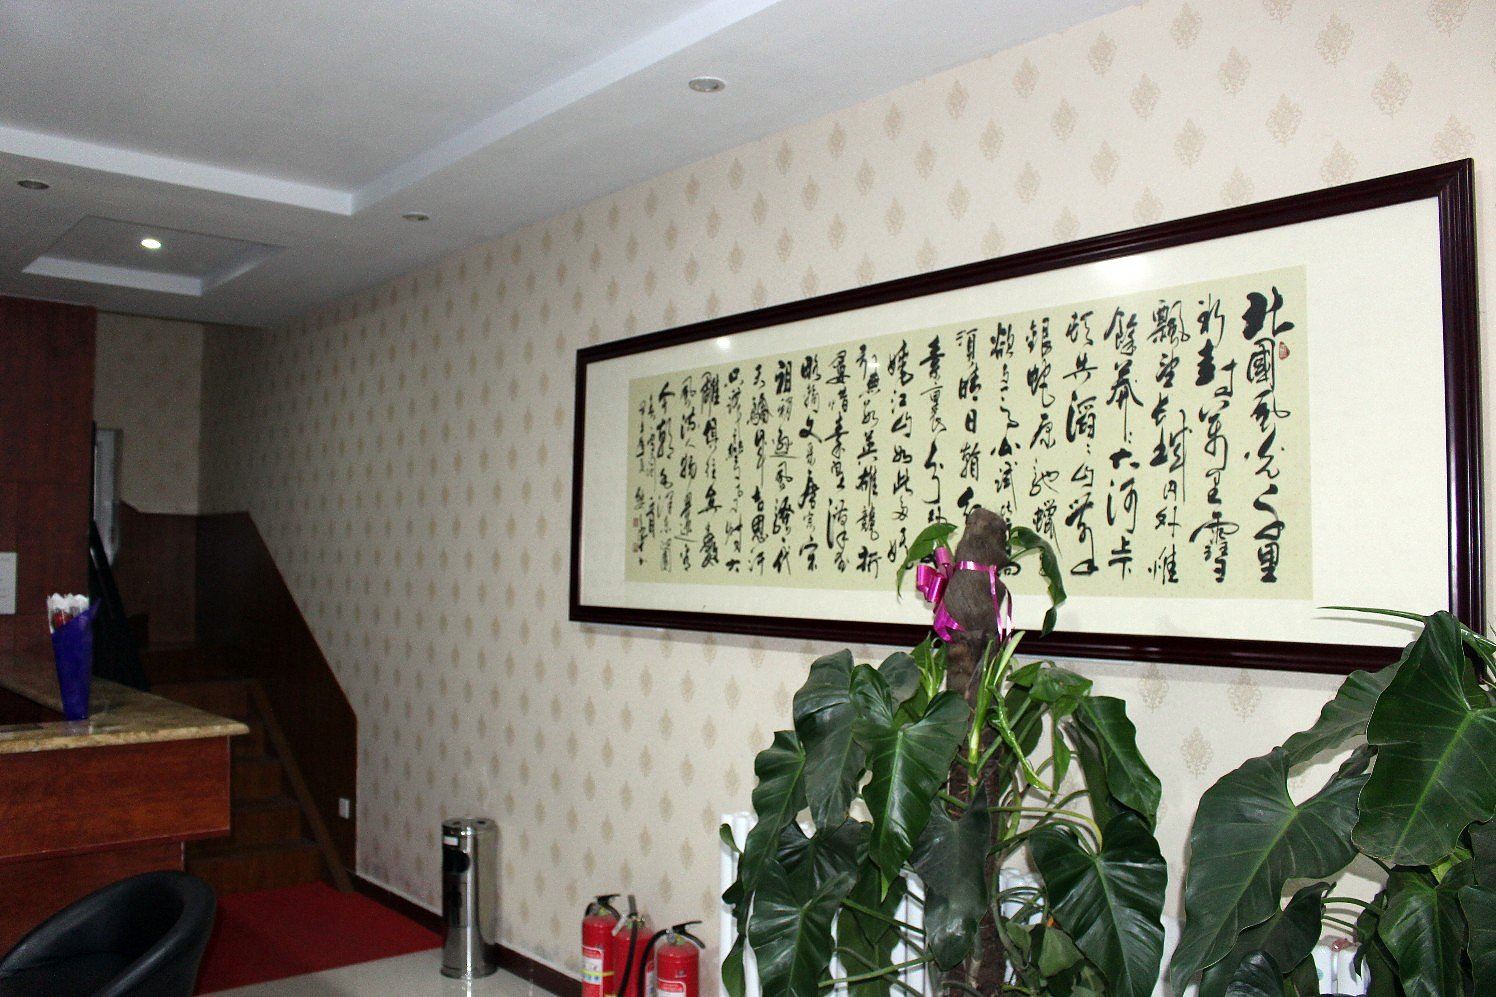 北國風光千里
冰封萬里雪
飄望長城內外惟
餘莽莽大河上下
頓失滔滔山舞
銀蛇原馳蠟
欲与天公試比高
須晴日
素裹分外
嬈江山如此多嬌
引無數英雄競折
腰惜秦皇漢武
略輸文采唐宗宋
祖稍遜風騷一代
天驕成吉思汗
只識彎弓射大
雕俱往矣數
風流人物還看
今朝毛澤東沁園
春雪詞